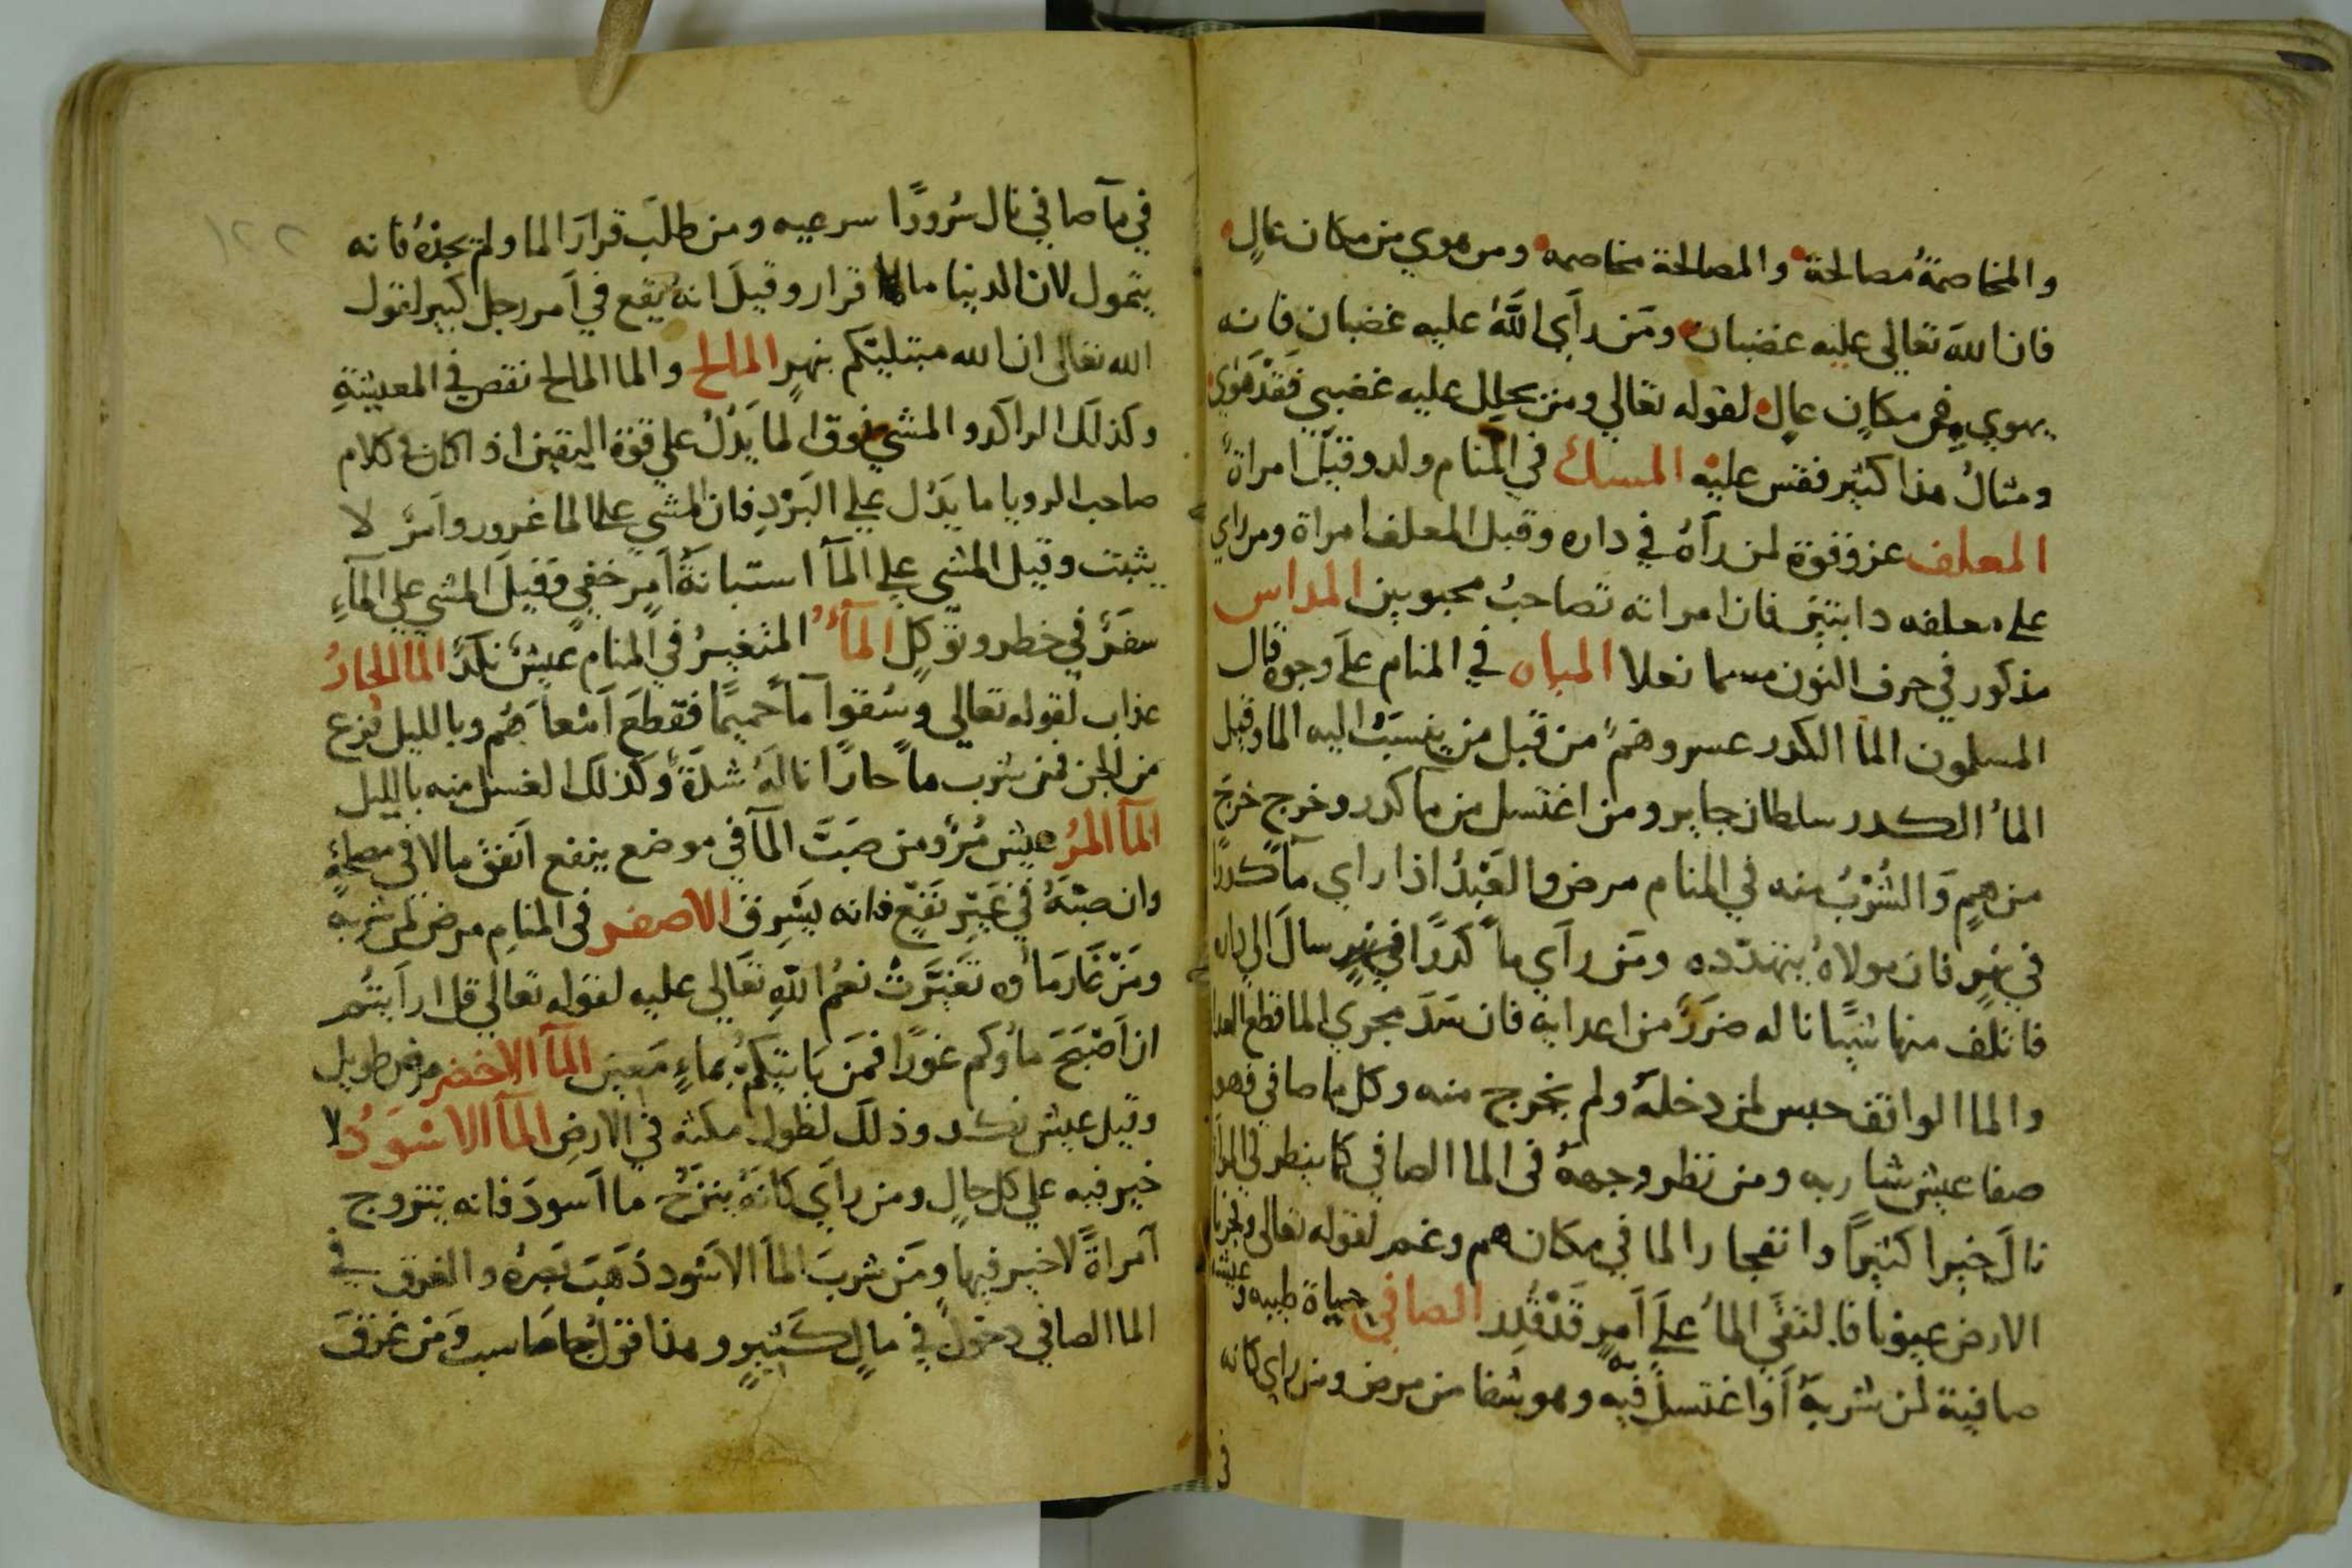 والمخاصمةُ مصالحة والمصالحة مخاصمه ومن هوي من مكان عالٍ
فان اللهَ تعالي عليه غضبان ومَن رأي اللهَ عليه غضبان فانه
يهوي من مكانٍ عالٍ لقوله تعالي ومن يحلل عليه غضبي فَقَدْ هَوَي
ومثالُ هذا كثير فقس عليه المسك في المنام ولد وقيل امراة
المعلف عز وقوة لمن رآهُ في داره وقيل المعلف امراة ومن راي
علي معلفه دابتين فان امراته تصاحبُ محبوبين المداس
مذكور في حرف النون مسما نعلا المياه في المنام علَي وجوه قال
المسلمون الما الكدر عسر وهمٌ من قبل من ينسَبُ اليه الما وقيل
الماُ الكدر سلطان جاير ومن اغتسل من ما كدر وخرج خرج
من همٍ وَالشُرْبُ منه في المنام مرض والعَبْدُ اذا راي مآ كدرًا
في نهرٍ فان مولاهُ يتهدده ومَن رأي ماً كَدرًا في نهرٍ سالَ الي داره
فاتلف منها شيًا ناله ضررٌ من اعدايه فان سَدَ مجري الما قطع العدا
والما الواقف حبس لمن دخلهُ ولم يخرج منه وكل ما صافي فهو
صفا عيش شاربه ومن نظر وجههُ في الما الصافي كما ينظر في المراة
نالَ خيرا كثيراً وانفجار الما في مكان هم وغم لقوله تعالي وفجرنا
الارض عيونا فالتقَي الماُ علَي اَمرٍ قَدْ قُدِر الصافي حياة طيبه وعيشة
صافية لمن شربهُ اَو اغتسلَ فيه وهو شفا من مرض ومن راي كانه
في
١٢٢
في مآ صافي نال سُرورًا سرعيه ومن طلَب قرارَ الما ولم يجدْهُ فانه
يتمول لان الدنيا مالها قرار وقيلَ انهُ يقع في اَمر رجل كبير لقول
الله تعالي ان الله مبتليكم بنهرٍ المالح والما المالح نقص في المعيشةِ
وكذلك الراكد والمشي فوق الما يَدُلُ علي قوة اليقين اذا كان في كلام
صاحب الرويا ما يَدُل علي البَرْدِ فان المشي علي الما غرور واَمرٌ لا
يثبت وقيل المشي علي المآ استبانةُ اَمرٍ خفي وقيلَ المشي علي المآءِ
سفَرٌ في خطر وتوكلٍ المآءُ المتغيرُ في المنام عيشٌ نكدٌ الما الحارُ
عذاب لقوله تعالي وسُقوا مآ حميمًا فقطعَ اَمْعآَهُم وبالليل فزع
من الجن فمن شرب ماً حارًا نالهُ شدةٌ وكذلك الغسل منه بالليل
المآ المُرُ عيش مُرٌ ومن صَبَّ المآ في موضع ينفع اَنفق مالا في مصلحةٍ
وان صبَّهُ في غَيْرِ نَفْعٍ فانه يسْرِف الاصفر في المنامِ مرض لمن شربه
ومَنْ غَارَ مَاُوه تَغَيَّرَتْ نعمُ اللهِ تعَالي عليه لقوله تعالي قل ارأيتُم
ان اَصْبَحَ ماُوكم غورًا فمَن يَاتيكمُ بماءٍ مَعين المآ الاخضر مرض طويل
وقيل عيش نكد وذلك لطول مكثه في الارضِ المآ الاسْوَدُ لا
خير فيه علي كل حالٍ ومن راَي كانهُ ينزَحُ ما اَسودَ فانه يتزوج
اَمراةً لا خير فيها ومَن شربَ المآَ الاسْود ذَهَبَ بَصَرهُ والغرق في
الما الصافي دخولٌ في مالٍ كَثيرٍ وهذا قولُ جاماسب وَمَن غرَقَ